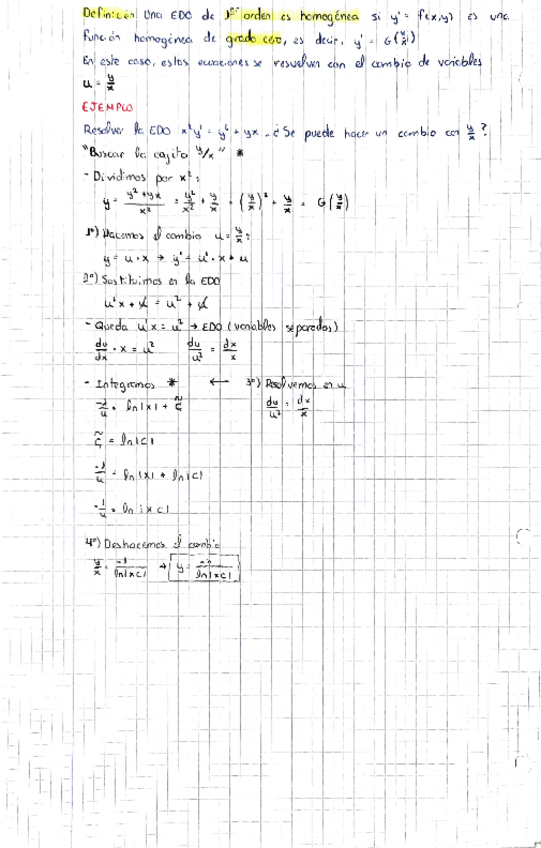 Definición Una EDO de 1er orden es homogénea si y' = f(x,y) es una
función homogénea de grado cero, es decir, y' = G(y/x)
En este caso, estas ecuaciones se resuelven con el cambio de variables
u = y/x
EJEMPLO
Resolver la EDO x²y' = y² + yx. ¿Se puede hacer un cambio con y/x?
"Buscar la cajita y/x" *
- Dividimos por x²:
y = (y²+yx)/x² = y²/x² + y/x = (y/x)² + y/x = G(y/x)
1º) Hacemos el cambio u = y/x:
y = u·x → y' = u'·x + u
2º) Sustituimos en la EDO
u'x + u = u² + u
- Queda u'x = u² → EDO (variables separadas)
du/dx · x = u²   du/u² = dx/x
- Integramos * ← 3º) Resolvemos en u
-1/u = ln|x| + C̃   du/u² = dx/x
C̃ = ln|C|
-1/u = ln|x| + ln|C|
-1/u = ln|xC|
4º) Deshacemos el cambio
y/x = -1/ln|xC| → y = /ln|xC|